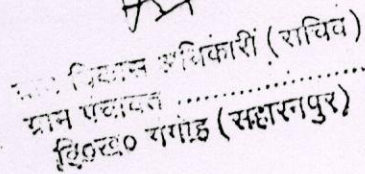 ग्राम विकास अधिकारी (सचिव)
ग्राम पंचायत ......................
वि०ख० गंगोह (सहारनपुर)